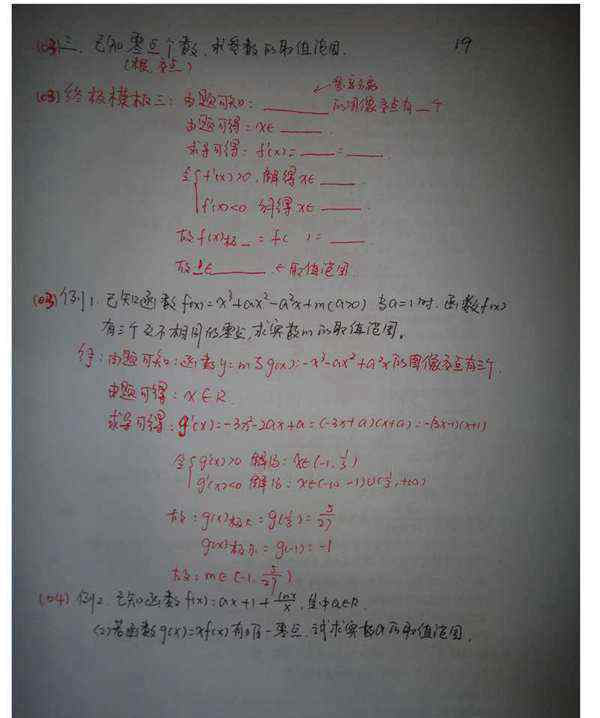 (03)三、已知零点个数,求参数的取值范围. 19
(根,交点)
(03)终极模板三:由题可知: ______ 的图像交点有__个
由题可得:x∈ ____.
求导可得:f'(x)=____=____.
令{f'(x)>0,解得x∈____.
f'(x)<0 解得x∈____.
故f(x)极_=f( )=____
故 ∈____ ←取值范围.
(03)例1.已知函数f(x)=x³+ax²-a²x+m(a>0) 当a=1时,函数f(x)
有三个互不相同的零点,求实数m的取值范围。
解:由题可知:函数y=m与g(x)=-x³-ax²+a²x的图像交点有三个.
由题可得:x∈R.
求导可得:g'(x)=-3x²-2ax+a=(-3x+a)(x+a)=-(3x-1)(x+1)
令{g'(x)>0 解得:x∈(-1,1/3)
g'(x)<0 解得:x∈(-∞,-1)∪(1/3,+∞)
故:g(x)极大=g(1/3)=5/27
g(x)极小=g(-1)=-1
故:m∈(-1,5/27)
(04)例2.已知函数f(x)=ax+1+lnx/x,其中a∈R.
(2)若函数g(x)=xf(x)有唯一零点,试求实数a的取值范围.